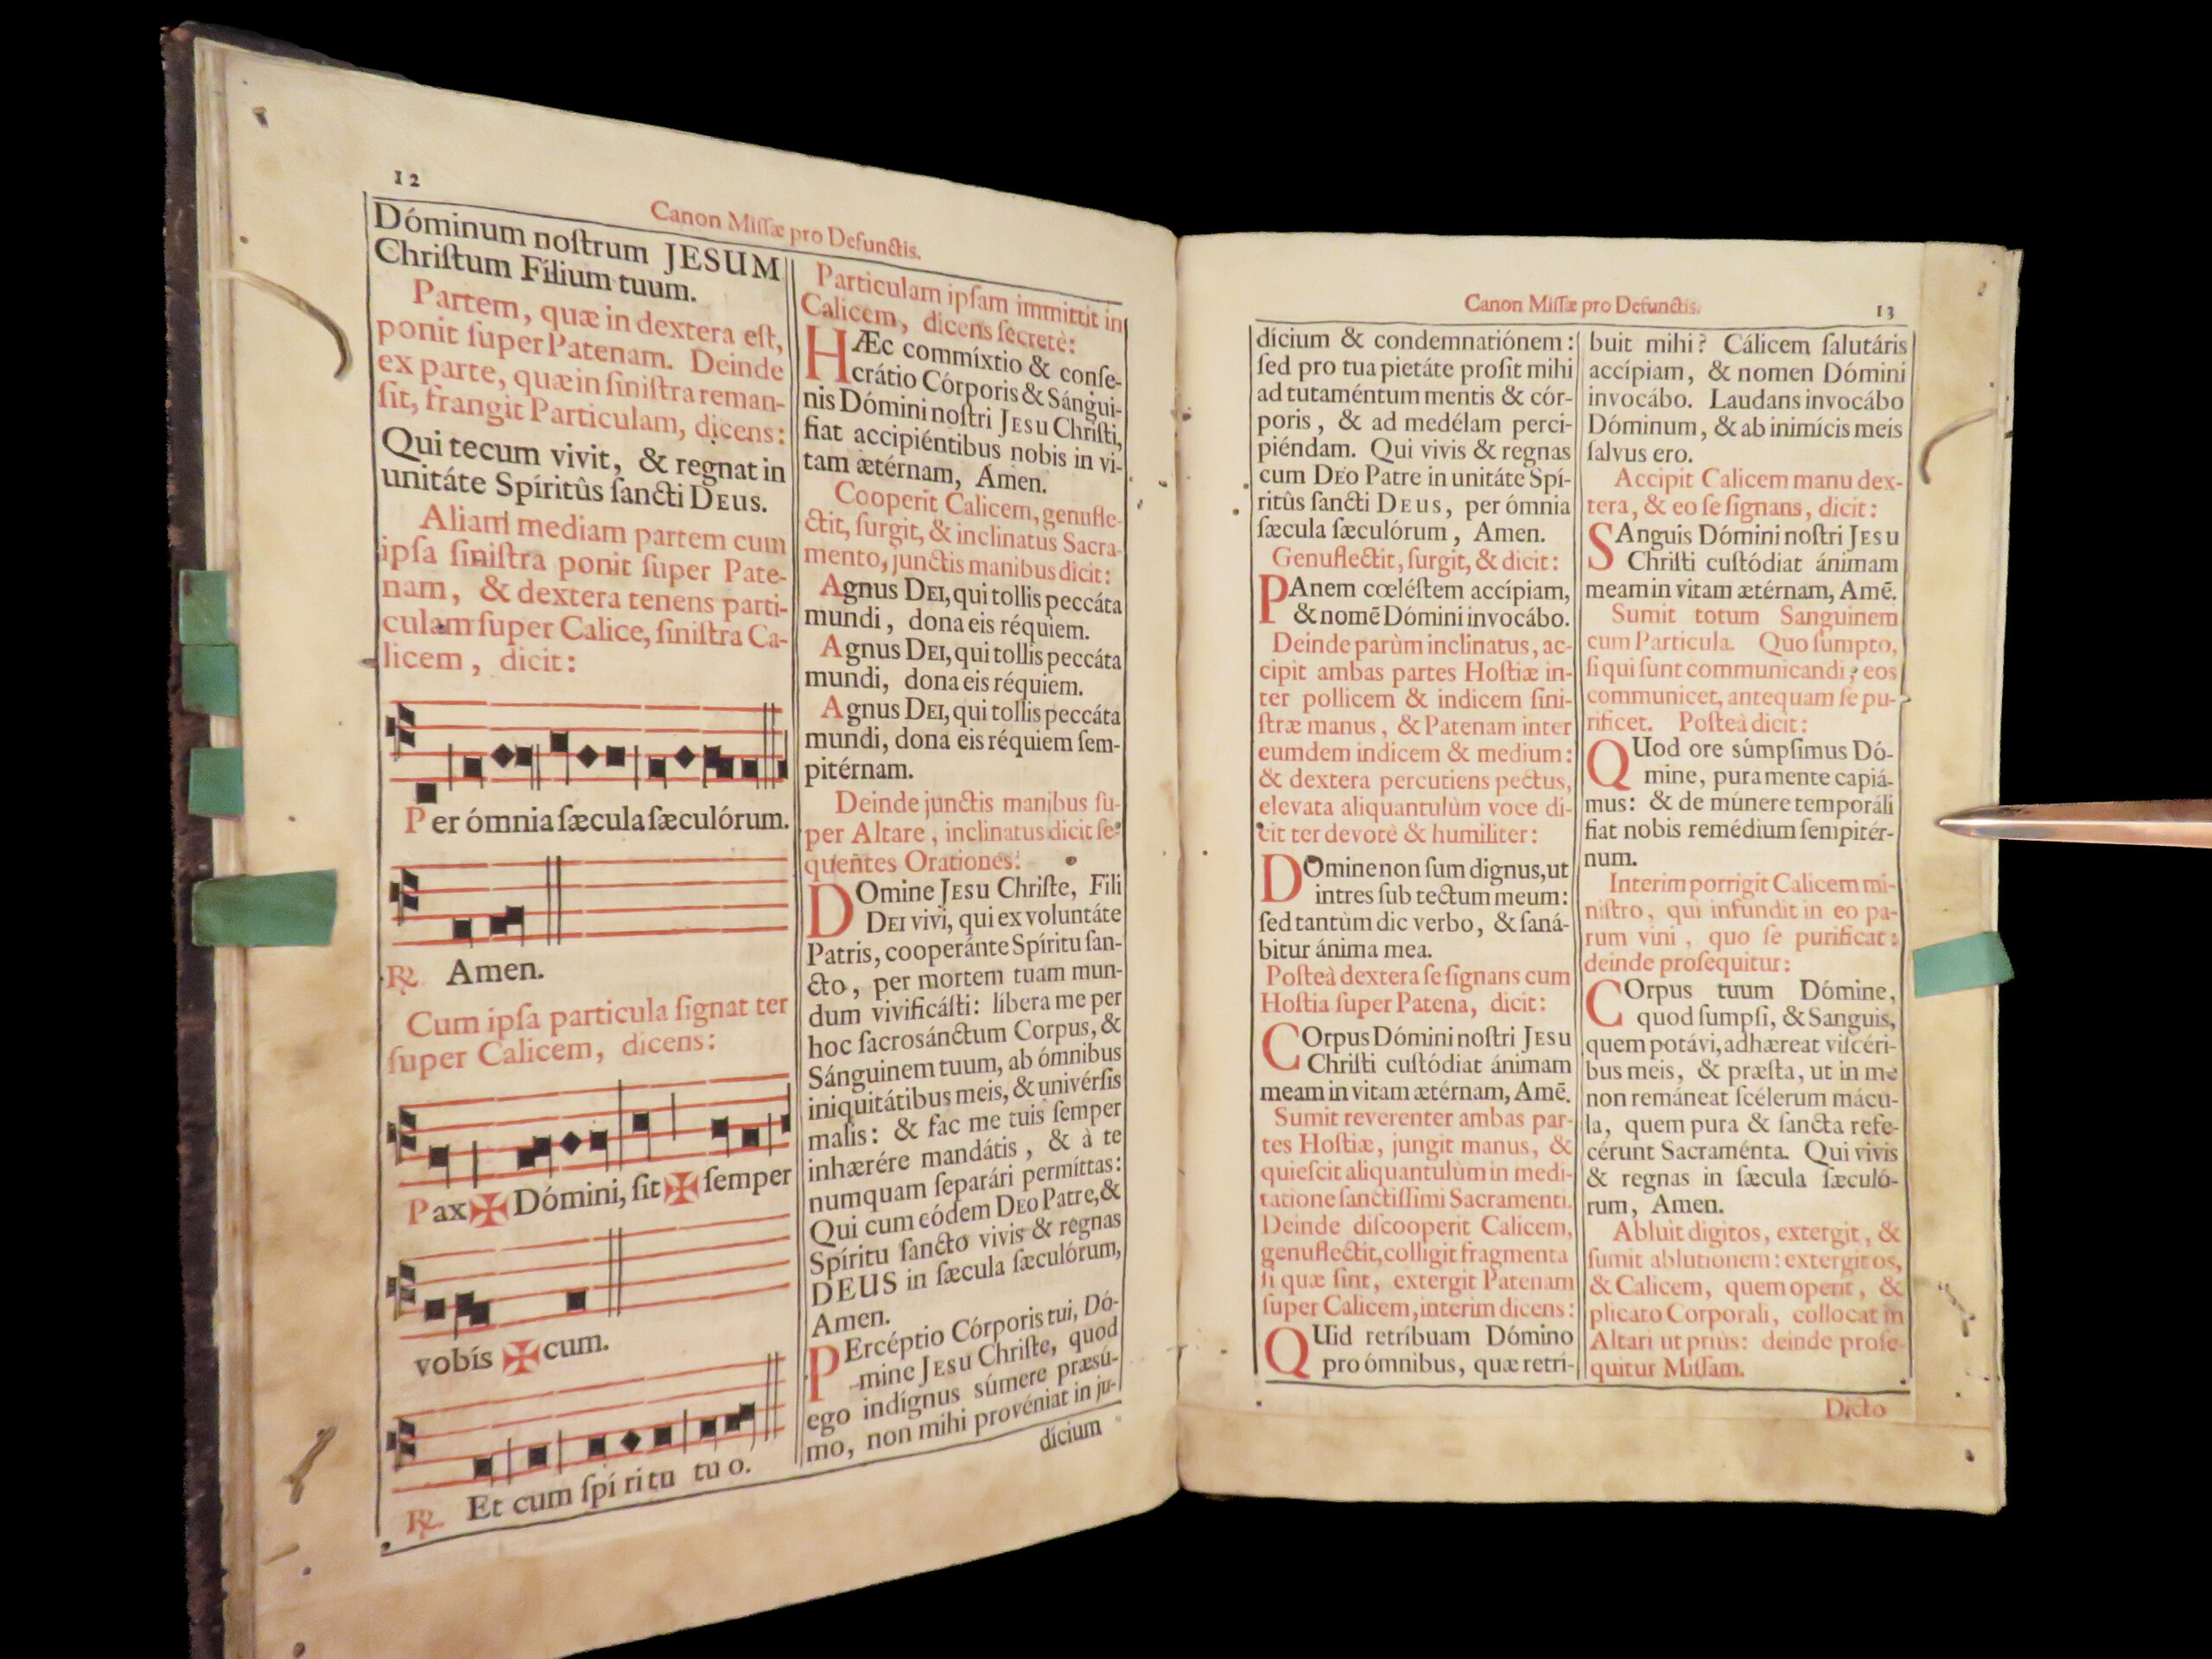 12
Canon Miſſæ pro Defunctis.
Dóminum noſtrum JESUM
Chriſtum Fílium tuum.
Partem, quæ in dextera eſt,
ponit ſuper Patenam. Deinde
ex parte, quæ in ſiniſtra reman-
ſit, frangit Particulam, dicens:
Qui tecum vivit, & regnat in
unitáte Spíritûs ſancti DEUS.
Aliam mediam partem cum
ipſa ſiniſtra ponit ſuper Pate-
nam, & dextera tenens parti-
culam ſuper Calice, ſiniſtra Ca-
licem, dicit:
Per ómnia ſæcula ſæculórum.
℟. Amen.
Cum ipſa particula ſignat ter
ſuper Calicem, dicens:
Pax ✠ Dómini, ſit ✠ ſemper
vobís ✠ cum.
℟. Et cum ſpí ri tu tu o.
Particulam ipſam immittit in
Calicem, dicens ſecretè:
HÆc commíxtio & conſe-
crátio Córporis & Sángui-
nis Dómini noſtri JESU Chriſti,
fiat accipiéntibus nobis in vi-
tam ætérnam, Amen.
Cooperit Calicem, genufle-
ctit, ſurgit, & inclinatus Sacra-
mento, junctis manibus dicit:
Agnus DEI, qui tollis peccáta
mundi, dona eis réquiem.
Agnus DEI, qui tollis peccáta
mundi, dona eis réquiem.
Agnus DEI, qui tollis peccáta
mundi, dona eis réquiem ſem-
pitérnam.
Deinde junctis manibus ſu-
per Altare, inclinatus dicit ſe-
quentes Orationes:
DOmine JESU Chriſte, Fili
DEI vivi, qui ex voluntáte
Patris, cooperánte Spíritu ſan-
cto, per mortem tuam mun-
dum vivificáſti: líbera me per
hoc ſacroſánctum Corpus, &
Sánguinem tuum, ab ómnibus
iniquitátibus meis, & univérſis
malis: & fac me tuis ſemper
inhærére mandátis, & à te
numquam ſeparári permíttas:
Qui cum eódem DEO Patre, &
Spíritu ſancto vivis & regnas
DEUS in ſæcula ſæculórum,
Amen.
PErcéptio Córporis tui, Dó-
mine JESU Chriſte, quod
ego indígnus súmere præsú-
mo, non mihi provéniat in ju-
dícium
Canon Miſſæ pro Defunctis.
13
dícium & condemnatiónem:
ſed pro tua pietáte proſit mihi
ad tutaméntum mentis & cór-
poris, & ad medélam perci-
piéndam. Qui vivis & regnas
cum DEO Patre in unitáte Spí-
ritûs ſancti DEUS, per ómnia
ſæcula ſæculórum, Amen.
Genuflectit, ſurgit, & dicit:
PAnem cœléſtem accípiam,
& nomē Dómini invocábo.
Deinde parùm inclinatus, ac-
cipit ambas partes Hoſtiæ in-
ter pollicem & indicem ſini-
ſtræ manus, & Patenam inter
eumdem indicem & medium:
& dextera percutiens pectus,
elevata aliquantulùm voce di-
cit ter devotè & humiliter:
DOmine non ſum dignus, ut
intres ſub tectum meum:
ſed tantùm dic verbo, & ſaná-
bitur ánima mea.
Poſteà dextera ſe ſignans cum
Hoſtia ſuper Patena, dicit:
COrpus Dómini noſtri JESU
Chriſti cuſtódiat ánimam
meam in vitam ætérnam, Amē.
Sumit reverenter ambas par-
tes Hoſtiæ, jungit manus, &
quieſcit aliquantulùm in medi-
tatione ſanctiſſimi Sacramenti.
Deinde diſcooperit Calicem,
genuflectit, colligit fragmenta
ſi quæ ſint, extergit Patenam
ſuper Calicem, interim dicens:
QUid retríbuam Dómino
pro ómnibus, quæ retrí-
buit mihi? Cálicem ſalutáris
accípiam, & nomen Dómini
invocábo. Laudans invocábo
Dóminum, & ab inimícis meis
ſalvus ero.
Accipit Calicem manu dex-
tera, & eo ſe ſignans, dicit:
SAnguis Dómini noſtri JESU
Chriſti cuſtódiat ánimam
meam in vitam ætérnam, Amē.
Sumit totum Sanguinem
cum Particula. Quo ſumpto,
ſi qui ſunt communicandi, eos
communicet, antequam ſe pu-
rificet. Poſteà dicit:
QUod ore súmpſimus Dó-
mine, pura mente capiá-
mus: & de múnere temporáli
fiat nobis remédium ſempitér-
num.
Interim porrigit Calicem mi-
niſtro, qui infundit in eo pa-
rum vini, quo ſe purificat:
deinde proſequitur:
COrpus tuum Dómine,
quod ſumpſi, & Sanguis,
quem potávi, adhæreat viſcéri-
bus meis, & præſta, ut in me
non remáneat ſcélerum mácu-
la, quem pura & ſancta refe-
cérunt Sacraménta. Qui vivis
& regnas in ſæcula ſæculó-
rum, Amen.
Abluit digitos, extergit, &
ſumit ablutionem: extergit os,
& Calicem, quem operit, &
plicato Corporali, collocat in
Altari ut priùs: deinde proſe-
quitur Miſſam.
Dicto